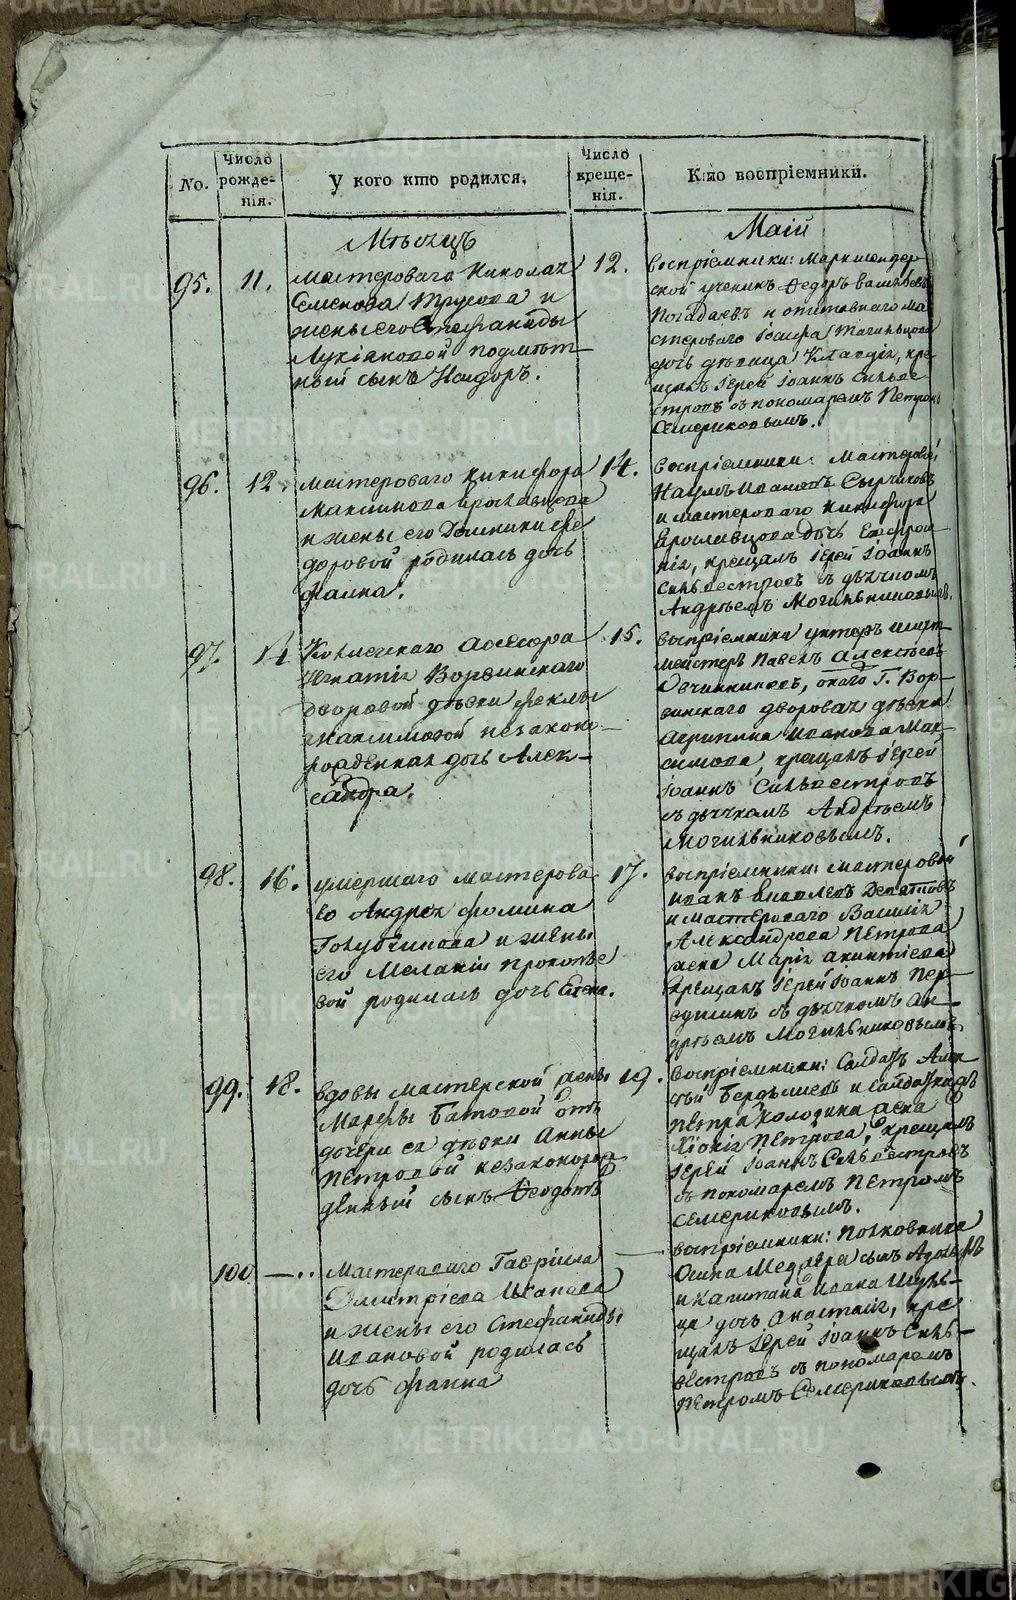 No.
Число рожде- нія.
У кого кто родился.
Число креще- нія.
Кто воспріемники.
Мѣсяцъ
Маій
95.
11.
мастероваго Николая
Семенова Трусова и
жены его Стефаниды
Лукіяновой подмѣт-
ный сынъ Исидоръ.
12.
воспріемники: Маркшейдер-
ской ученикъ Ѳедоръ Васильевъ
Погадаевъ и отставнаго ма-
стероваго Іосифа
дочь дѣвица Клавдія, кре-
щалъ Іерей Іоаннъ Сильве-
стровъ съ пономаремъ Петромъ
Семериковымъ.
96.
12.
мастероваго Никифора
Максимова Ярославцова
и жены его Домники Фе-
доровой родилась дочь
Фаина.
14.
воспріемники: Мастеровой
Наумъ Ивановъ Сырчиковъ
и мастероваго Никифора
Ярославцова дочь Евфрои-
нія, крещалъ Іерей Іоаннъ
Сильвестровъ съ дьячкомъ
Андреемъ Могильниковымъ.
97.
14
Коллежскаго Ассесора
Игнатія Ворвинскаго
дворовой дѣвки Феклы
Максимовой незаконно-
рожденная дочь Алек-
сандра.
15.
воспріемники унтеръ шихт-
мейстеръ Павелъ Алексѣевъ
Овчинниковъ, онаго Г. Вор-
винскаго дворовая дѣвка
Агрипина Иванова Мак-
симова, крещалъ Іерей
Іоаннъ Сильвестровъ
съ дьячкомъ Андреемъ
Могильниковымъ.
98.
16.
умершаго мастерова-
го Андрея Фомина
Голубчикова и жены
его Меланіи Прокопье-
вой родилась дочь Елена.
17.
воспріемники: мастеровой
Иванъ Яковлевъ Девятовъ
и мастероваго Василія
Александрова Петрова
жена Марія Акинтіева
крещалъ Іерей Іоаннъ Пер-
вушинъ съ дьячкомъ Ан-
дреемъ Могильниковымъ.
99.
18.
вдовы мастерской жены
Марѳы Батовой отъ
дочери ея дѣвки Анны
Петровой незаконорож-
денный сынъ Ѳеодотъ
19.
воспріемники: Солдатъ Алек-
сѣй Бердышевъ и солдатка
Петра Холодина жена
Хіонія Петрова, крещалъ
Іерей Іоаннъ Сильвестровъ
съ пономаремъ Петромъ
Семериковымъ.
100
—..
Мастероваго Гавріила
Димитріева Иканова
и жены его Стефаниды
Ивановой родилась
дочь Фаина
—
воспріемники: Полковника
Осипа Медлера сынъ Адольфъ
и капитана Ивана Шуль-
ца дочь Анастасія, кре-
щалъ Іерей Іоаннъ Силь-
вестровъ съ пономаремъ
Петромъ Семериковымъ.
METRIKI.GASO-URAL.RU